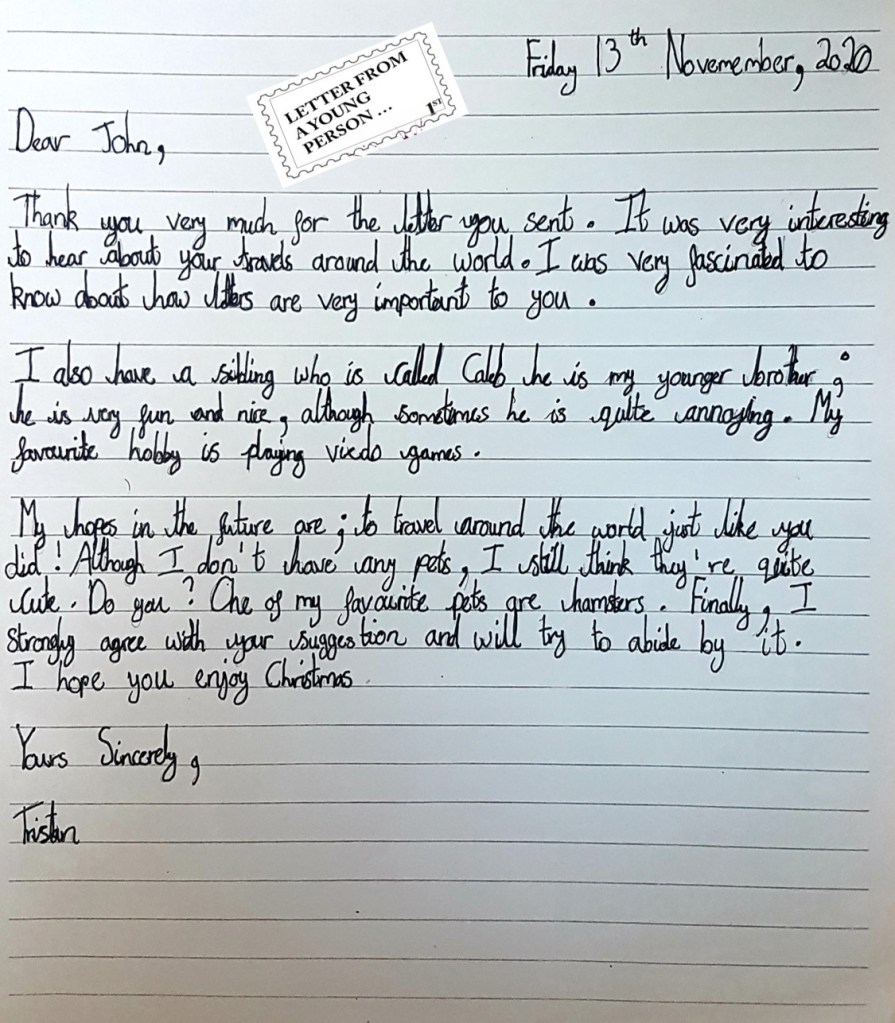 Friday 13th Novemember, 2020
LETTER FROM
A YOUNG
PERSON...
1ST
Dear John,
Thank you very much for the letter you sent. It was very interesting
to hear about your travels around the world. I was very fascinated to
know about how letters are very important to you.
I also have a sibling who is called Caleb he is my younger brother;
he is very fun and nice, although sometimes he is quite annoying. My
favourite hobby is playing viedo games.
My hopes in the future are; to travel around the world just like you
did! Although I don't have any pets, I still think they're quite
cute. Do you? One of my favourite pets are hamsters. Finally, I
strongly agree with your suggestion and will try to abide by it.
I hope you enjoy Christmas.
Yours Sincerely,
Tristan